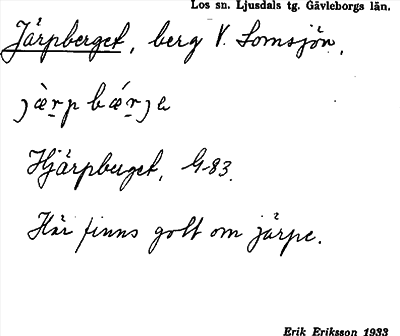 Los sn. Ljusdals tg. Gävleborgs län.
Järpberget, berg V. Lomsjön.
jæ̀rp bǽrjə
Hjärpberget, G-83.
Här finns gott om järpe.
Erik Eriksson 1933